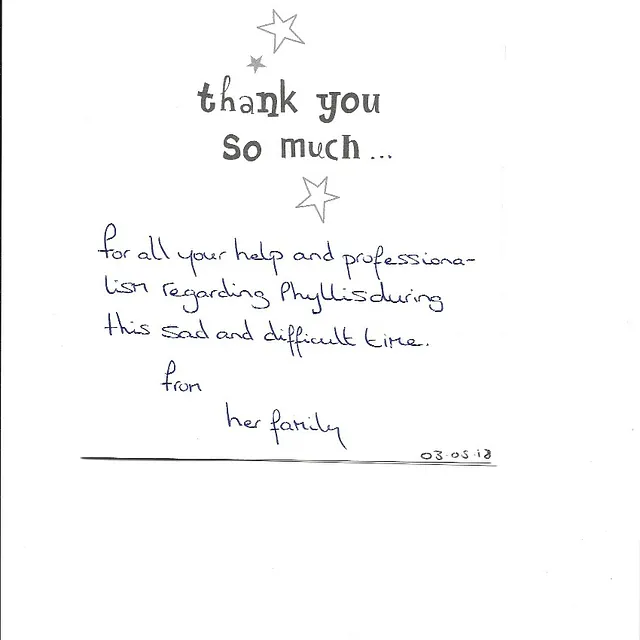 thank you
so much...
for all your help and professiona-
lism regarding Phyllis during
this sad and difficult time.
from
her family
03.05.18